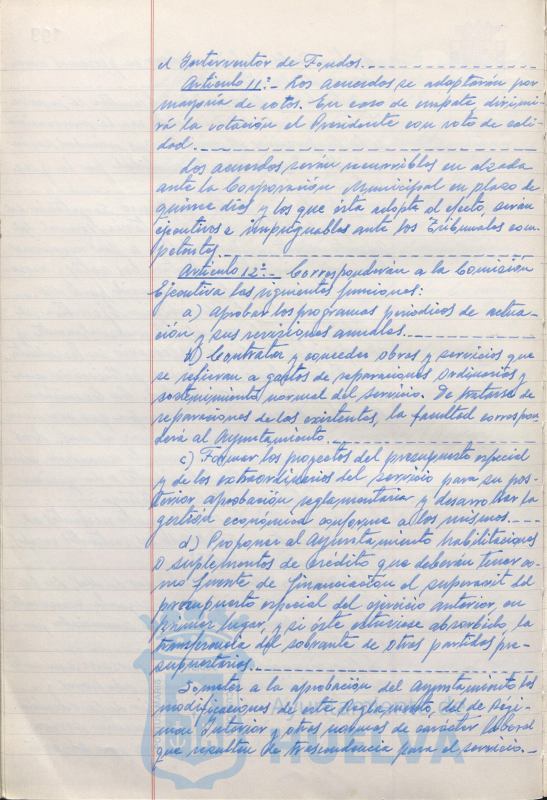 el Interventor de Fondos.
Artículo 11º.- Los acuerdos se adoptarán por
mayoría de votos. En caso de empate dirimi-
rá la votación el Presidente con voto de cali-
dad.
Los acuerdos serán recurribles en alzada
ante la Corporación Municipal en plazo de
quince días y los que ésta adopte al efecto, serán
ejecutivos e impugnables ante los Tribunales com-
petentes.
Artículo 12º.- Corresponderán a la Comisión
Ejecutiva las siguientes funciones:
a) Aprobar los programas periódicos de actua-
ción y sus revisiones anuales.
b) Contratar y conceder obras y servicios que
se refieran a gastos de reparaciones ordinarias y
sostenimiento normal del servicio. De tratarse de
reparaciones de las existentes, la facultad correspon
derá al Ayuntamiento.
c) Formar los proyectos del presupuesto especial
y de los extraordinarios del servicio para su pos-
terior aprobación reglamentaria y desarrollar la
gestión económica conforme a los mismos.
d) Proponer al Ayuntamiento habilitaciones
o suplementos de crédito que deberán tener co-
mo fuente de financiación el superavit del
presupuesto especial del ejercicio anterior, en
primer lugar, y si éste estuviese absorbido, la
transferencia del sobrante de otras partidas pre-
supuestarias.
Someter a la aprobación del Ayuntamiento las
modificaciones de este Reglamento, del de Régi-
men Interior y otras normas de carácter laboral
que resulten de trascendencia para el servicio.-
HUELVA